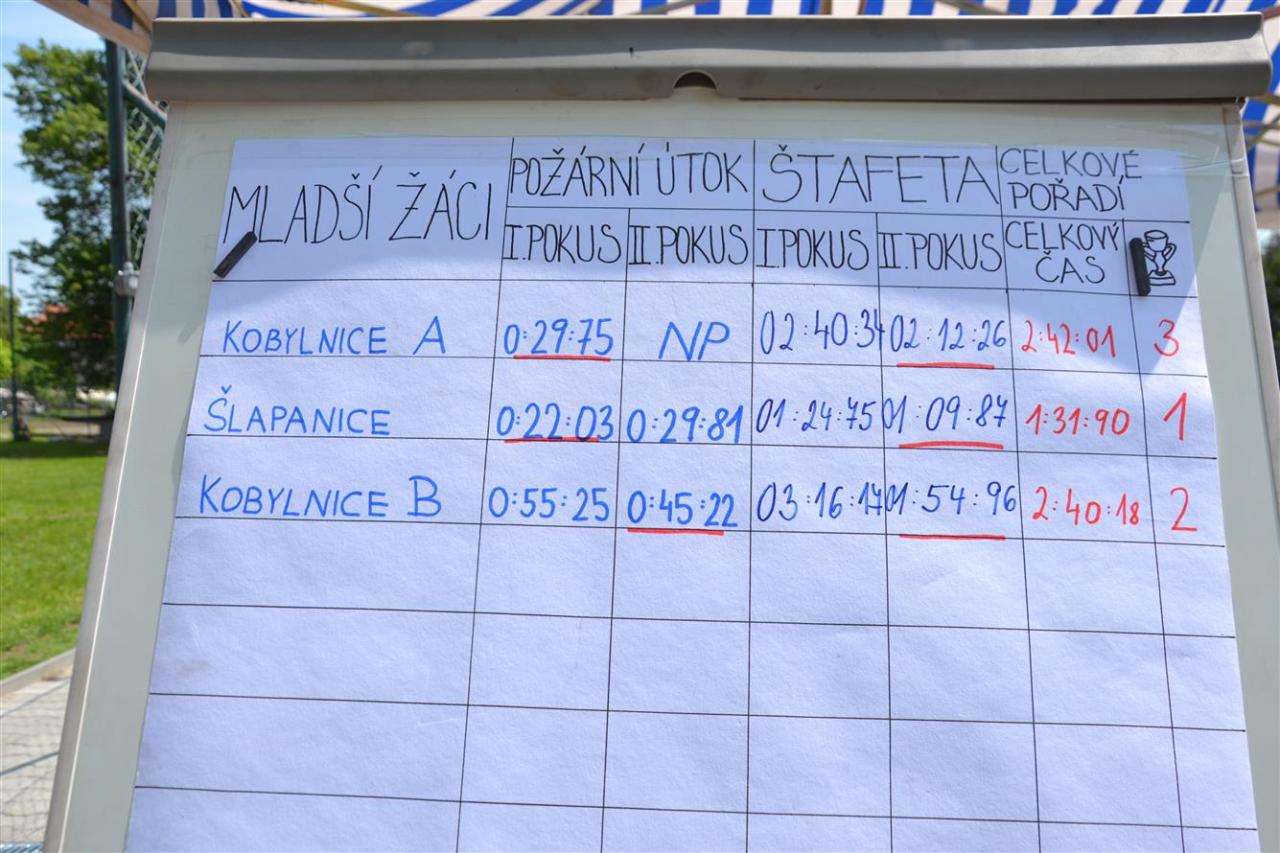 MLADŠÍ ŽÁCI POŽÁRNÍ ÚTOK ŠTAFETA CELKOVÉ POŘADÍ
I. POKUS II. POKUS I. POKUS II. POKUS CELKOVÝ ČAS
KOBYLNICE A 0:29:75 NP 02:40:34 02:12:26 2:42:01 3
ŠLAPANICE 0:22:03 0:29:81 01:24:75 01:09:87 1:31:90 1
KOBYLNICE B 0:55:25 0:45:22 03:16:17 01:54:96 2:40:18 2